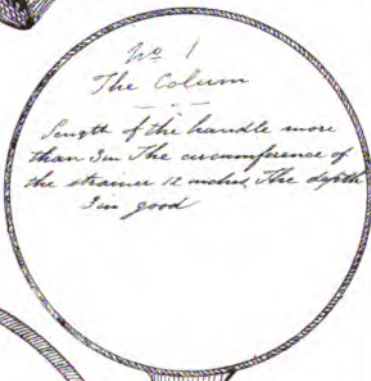 No 1
The Colum
Length of the handle more
than 3in The circumference of
the strainer 12 inches. The depth
3 in good